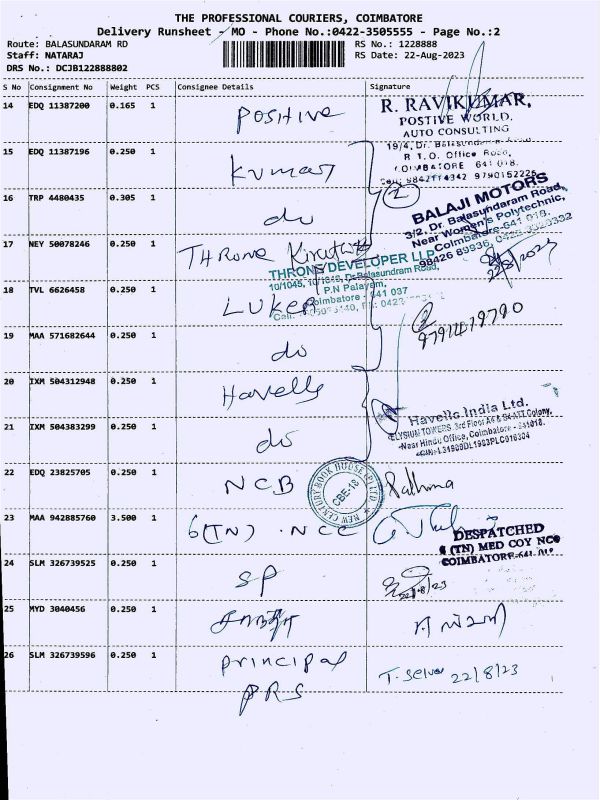 THE PROFESSIONAL COURIERS, COIMBATORE
Delivery Runsheet - MO - Phone No.:0422-3505555 - Page No.:2
Route: BALASUNDARAM RD
RS No.: 1228888
Staff: NATARAJ
RS Date: 22-Aug-2023
DRS No.: DCJB122888802
S No Consignment No Weight PCS Consignee Details Signature
14 EDQ 11387200 0.165 1 Positive
R. RAVIKUMAR,
POSTIVE WORLD.
AUTO CONSULTING
19/4, Dr.
R T.O. Office Road,
641 018.
15 EDQ 11387196 0.250 1 Kumar
16 TRP 4480435 0.305 1 do
2
BALAJI MOTORS
3/2, Dr. Balasundaram Road,
Near Women's Polytechnic,
Coimbatore-641 018.
17 NEY 50078246 0.250 1 THRONE
THRONE DEVELOPER LLP
Dr.Balasundram Road,
P.N Palayam,
Coimbatore - 641 037
18 TVL 6626458 0.250 1 LUKER
2
19 MAA 571682644 0.250 1 do
20 IXM 504312948 0.250 1 Havells
Havells India Ltd.
ELYSIUM TOWERS 3rd Floor
Near Hindu Office, Coimbatore - 641018.
21 IXM 504383299 0.250 1 do
22 EDQ 23825705 0.250 1 NCB
NEW CENTURY BOOK HOUSE (P) LTD
CBE-18
23 MAA 942885760 3.500 1 6(TN) . NCC
DESPATCHED
6 (TN) MED COY NCC
COIMBATORE-641 018
24 SLM 326739525 0.250 1 SP
22/8/23
25 MYD 3040456 0.250 1
26 SLM 326739596 0.250 1 principal
PRS
T. Selva 22/8/23